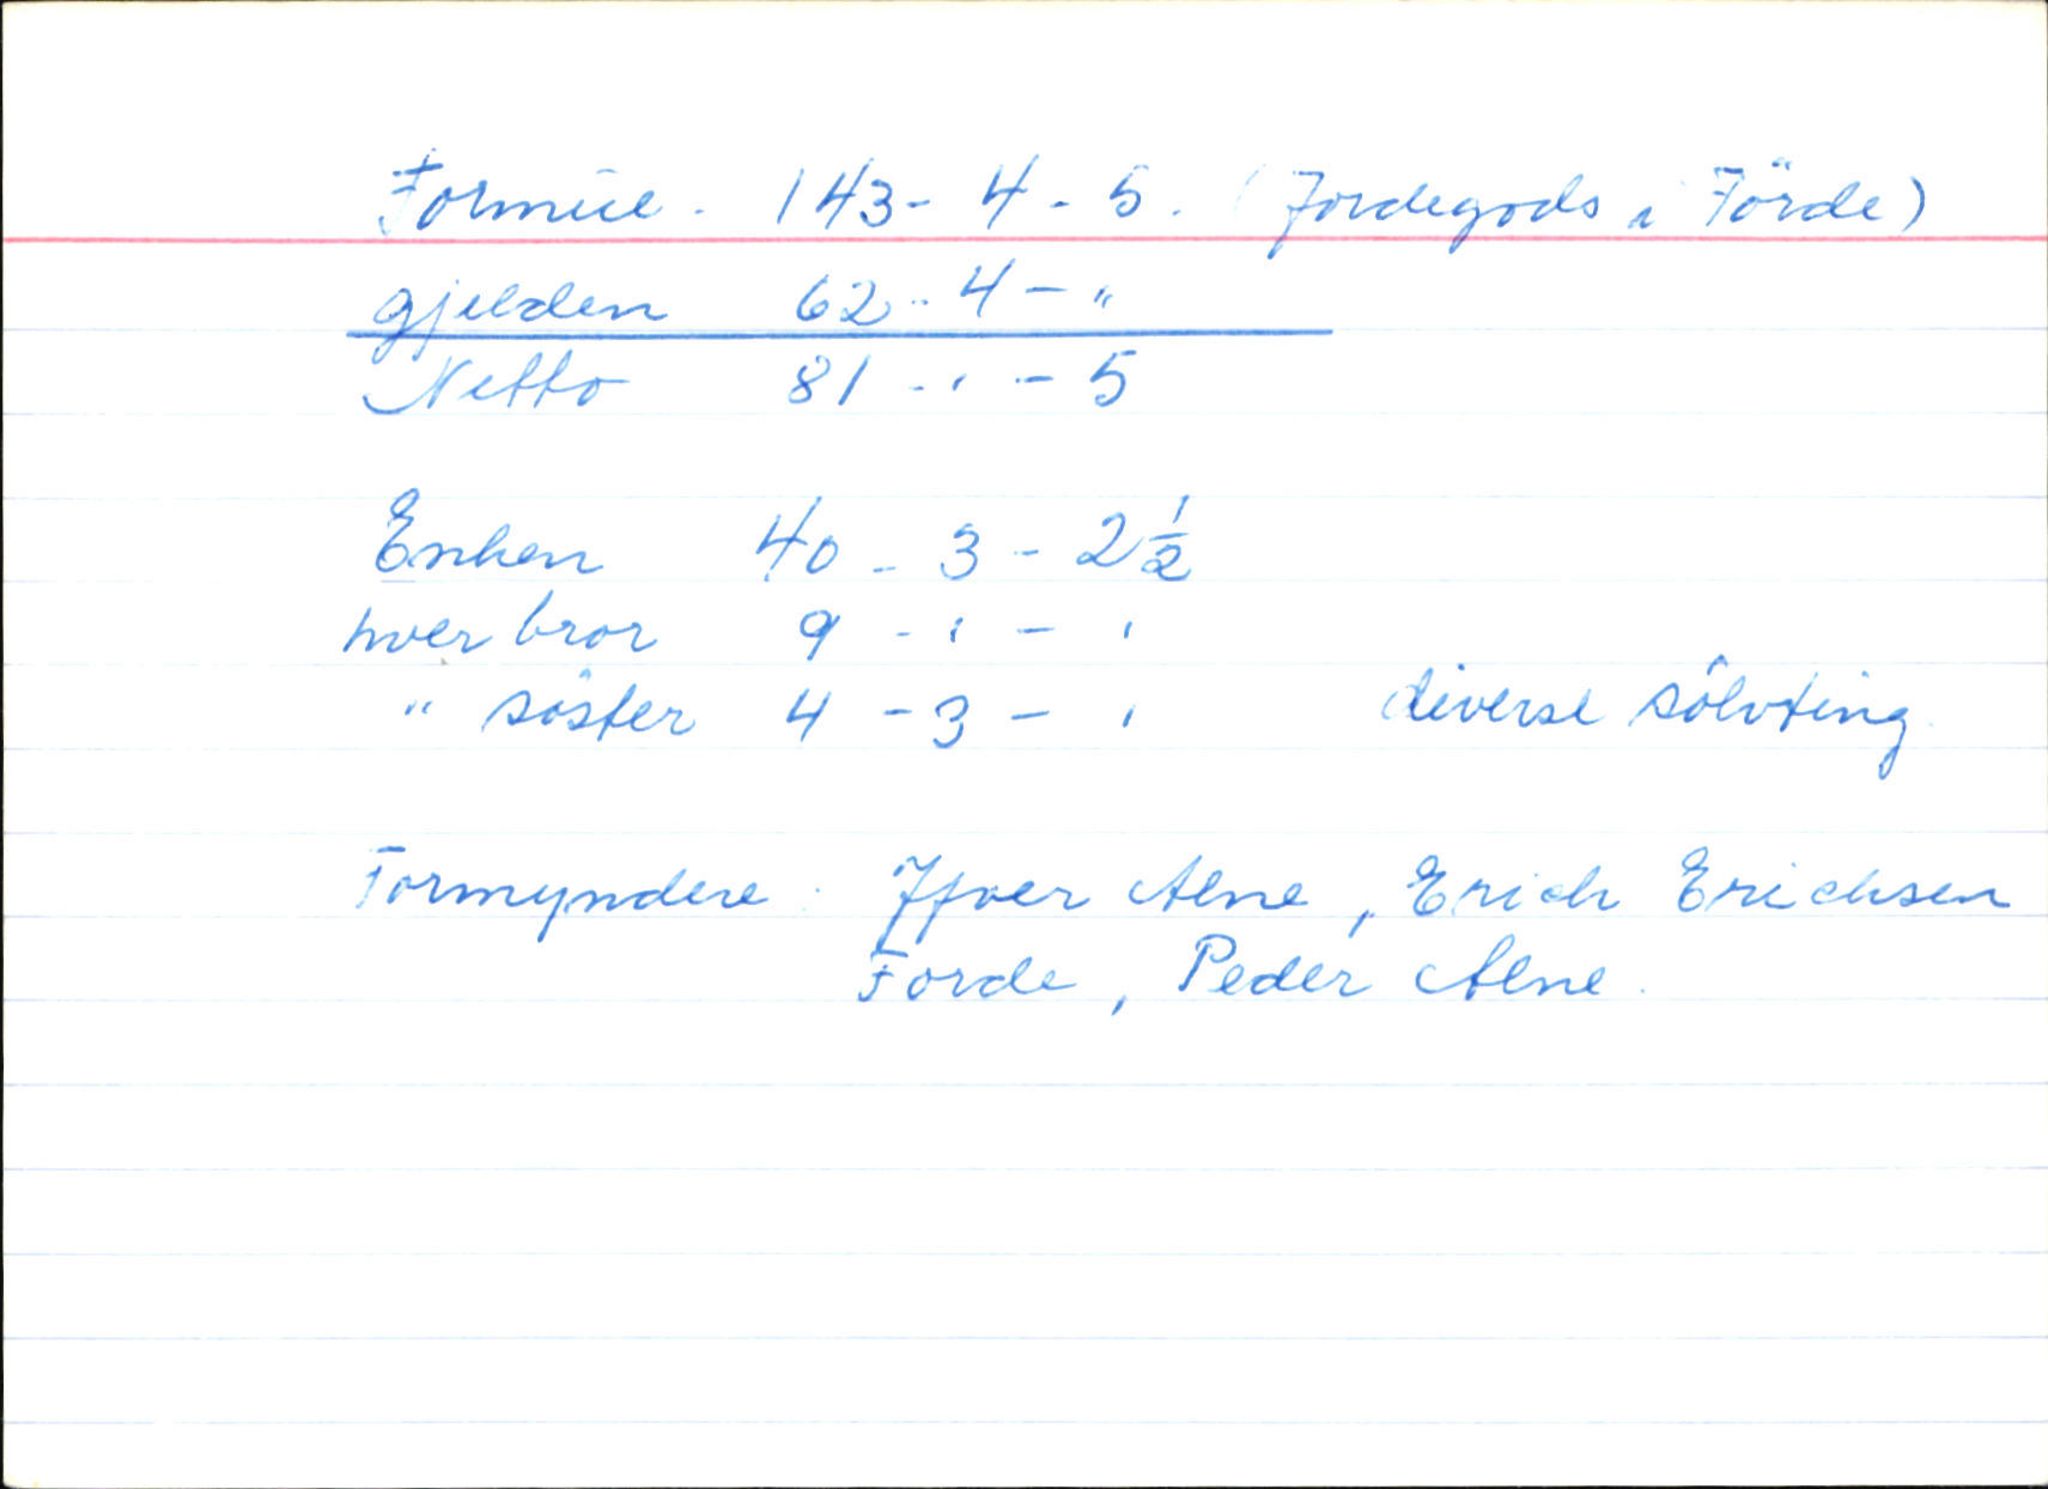 Formue. 143 - 4 - 5. (Jordegods i Förde)
gjelden 62 - 4 - "
Netto 81 - ' - 5
Enken 40 - 3 - 2 1/2
hver bror 9 - ' - '
" søster 4 - 3 - ' diverse sølvting
Formyndere : Ifver Alne, Erich Erichsen
Förde, Peder Alne.